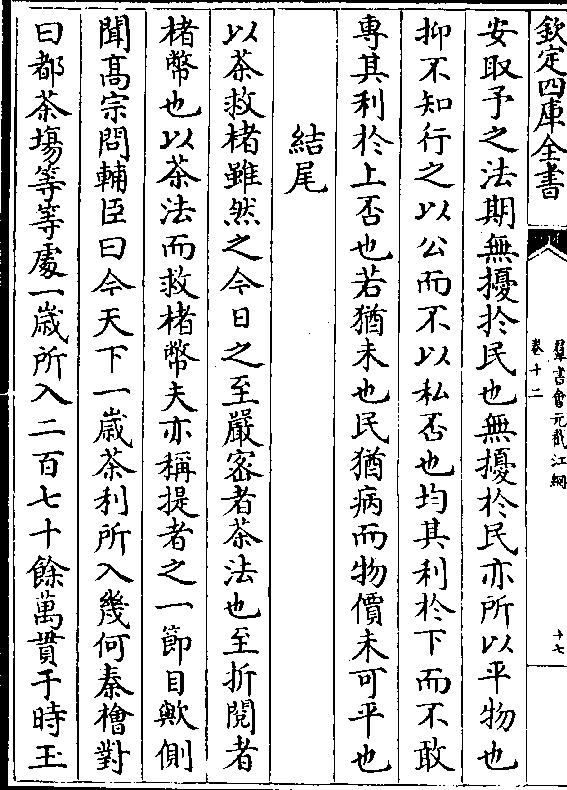 欽定四庫全書
羣書會元截江網
卷十二
十七
安取予之法期無擾於民也無擾於民亦所以平物也
抑不知行之以公而不以私否也均其利於下而不敢
專其利於上否也若猶未也民猶病而物價未可平也
結尾
以茶救楮雖然之今日之至嚴宻者茶法也至折閱者
楮幣也以茶法而救楮幣夫亦稱提者之一節目歟側
聞髙宗問輔臣曰今天下一歲茶利所入幾何秦檜對
曰都茶塲等等處一歲所入二百七十餘萬貫于時玉